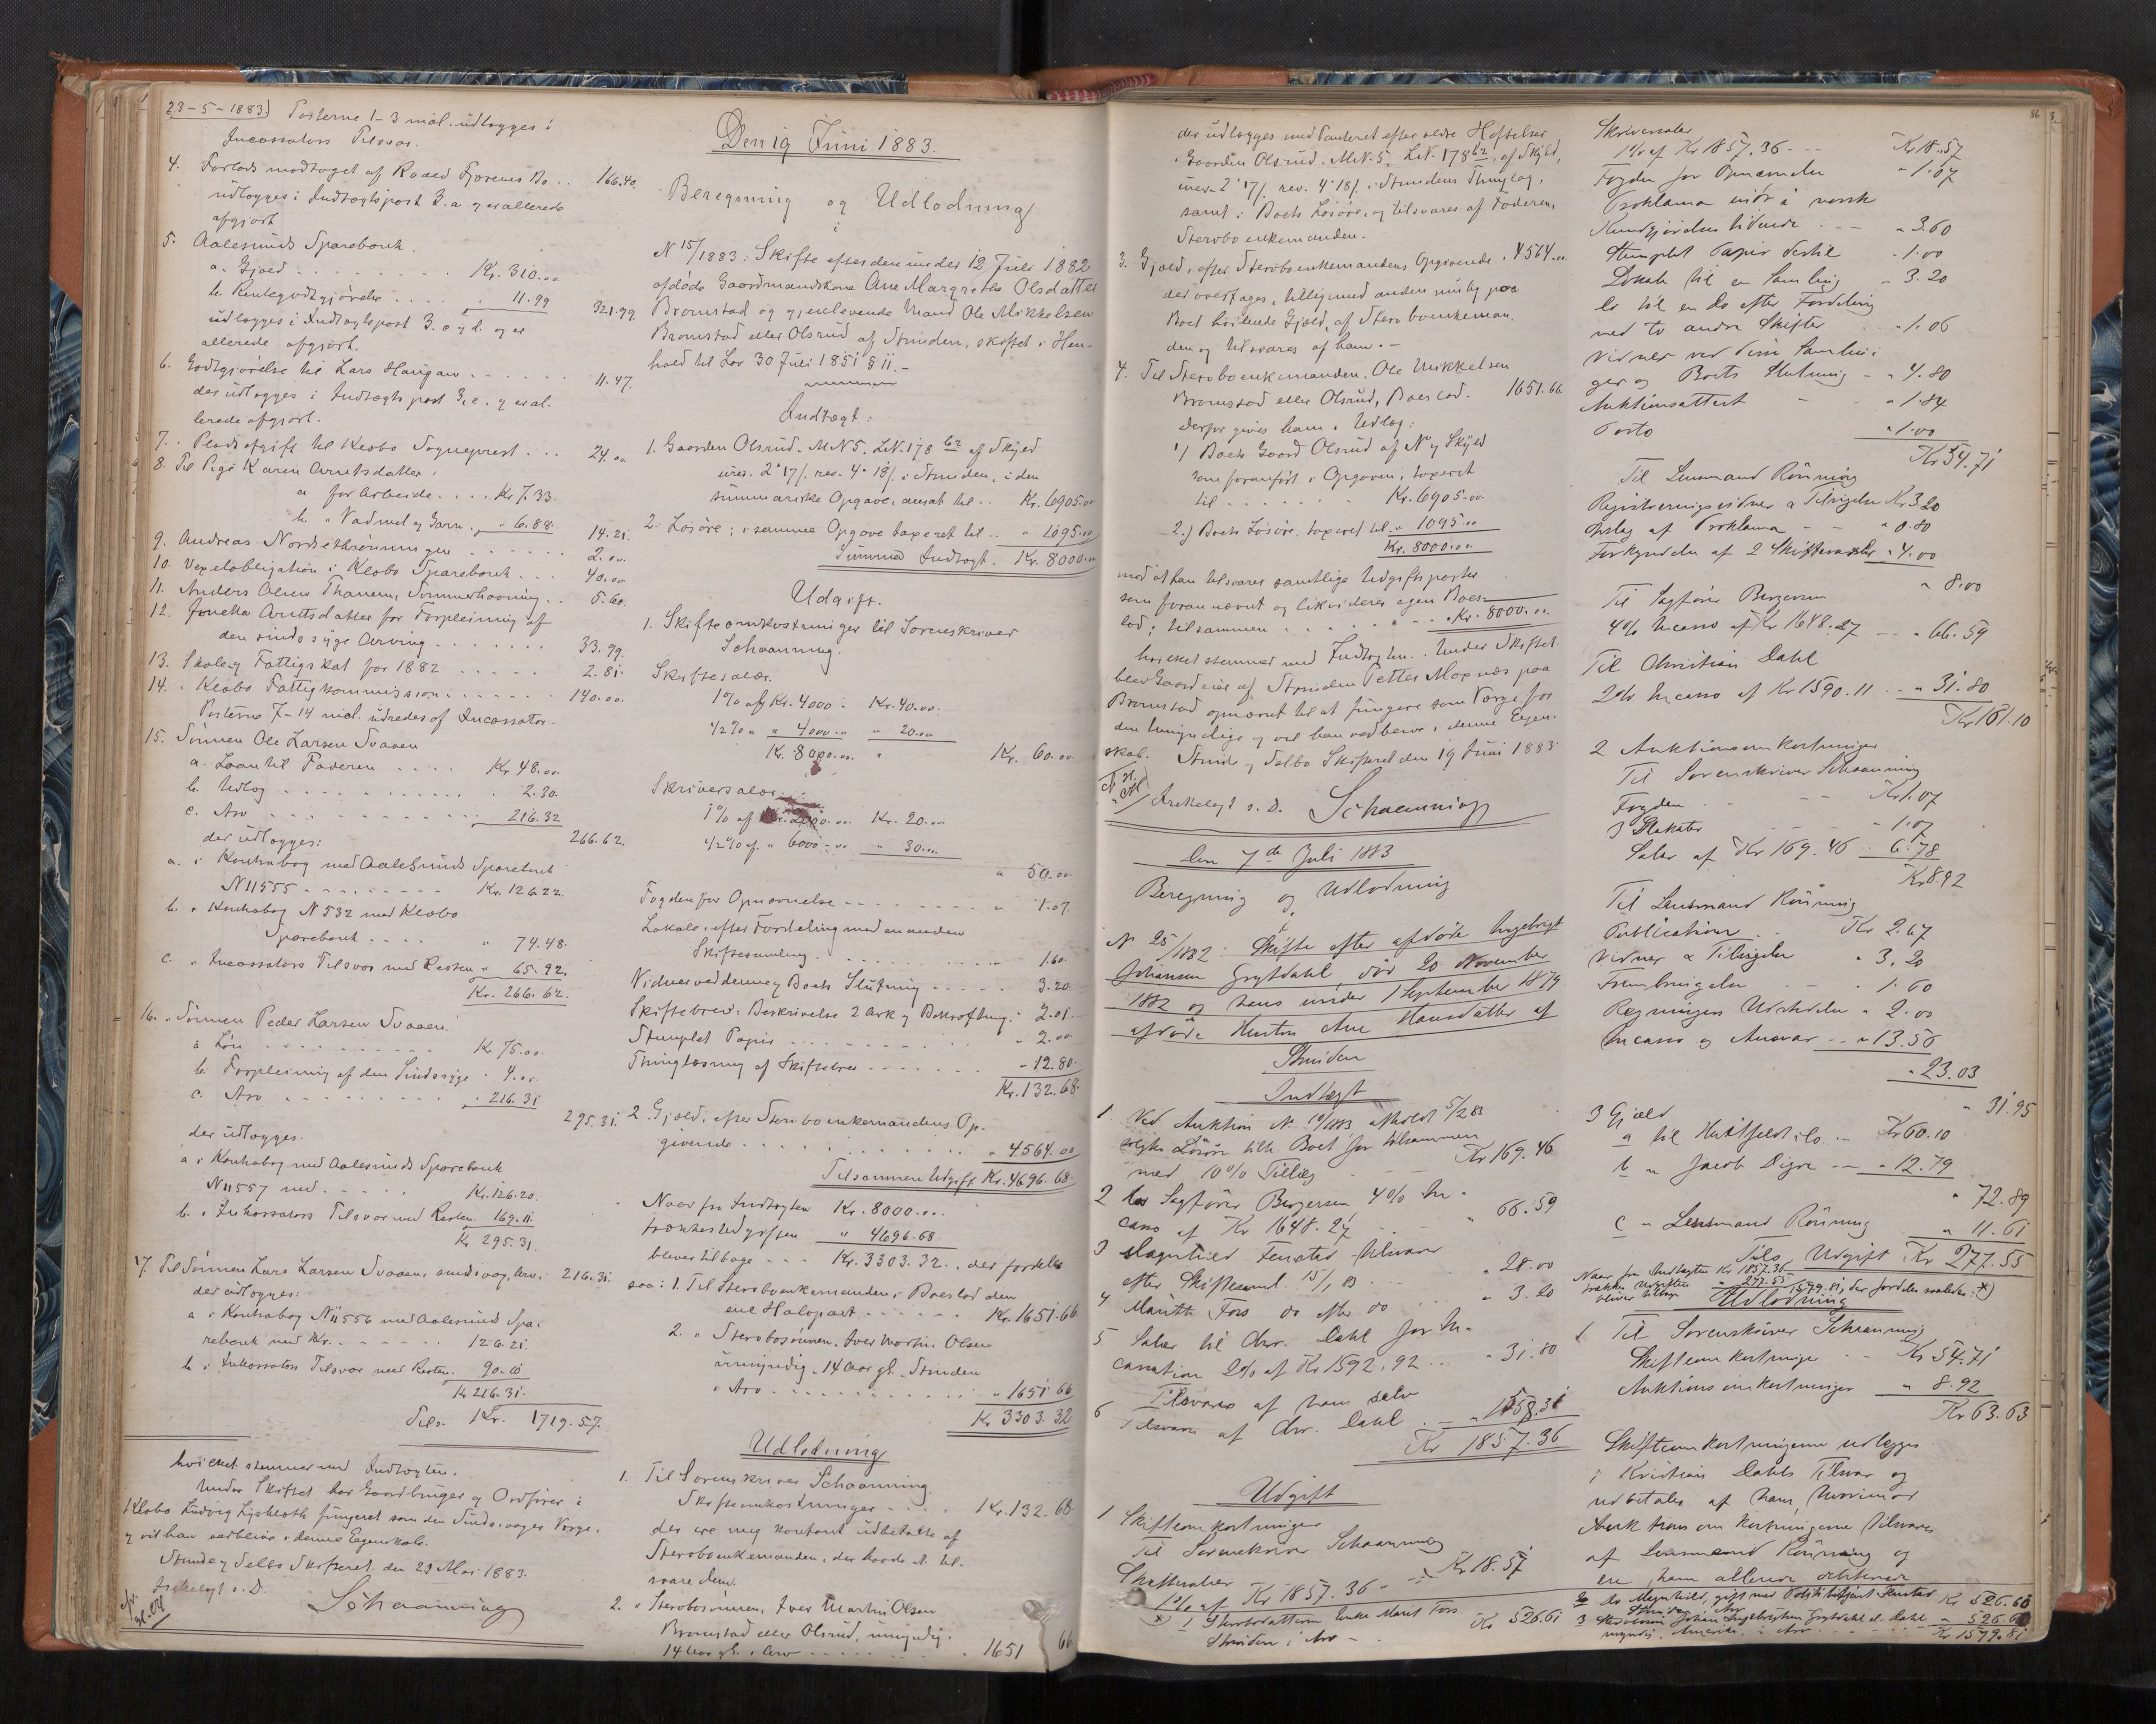 23-5-1883) Posterne 1-3 incl. udlægges i
Incassators Tilsvar.
4. Forlods modtaget af
udlægges i Indtægtspost 3.a og er allerede
afgjort
166.40.
5. Aalesunds Sparebank.
a. Gjæld Kr. 310.00
b. Rentegodtgjørelse " 11.99
321.99.
udlægges i Indtægtspost 3. og d. og er
allerede afgjort.
6. Godtgjørelse til Lars Haugan 11.47.
der udlægges i Indtægts post 3, e. og er al-
lerede afgjort.
7. Pladsafgift til Klæbo Sogneprest 24.00
8. Til Pige Karen Arntsdatter:
a for Arbeide Kr 7.33.
b. " Vadmel og Garn " 6.88
14.21.
9. Andreas Nordsetrønningen 2.00.
10. Vexelobligation i Klæbo Sparebank 40.00
11. Anders Olsen Thanem, Sommerhavning 5.60.
12. Jonetta Arntsdatter for Forpleining af
den sindssyge Arving 33.99.
13. Skole og Fattigskat for 1882 2.81.
14. " Klæbo Fattigkommission 140.00.
Posterne 7-14 incl. udredes af Incassator.
15. Sønnen Ole Larsen Svaaen
a. Laan til Faderen Kr 48.00
b. Udlog " 2.30.
c. Arv " 216.32
266.62.
der udlægges:
a. i Kontrabog med Aalesunds Sparebank
N 11555 Kr. 126.22.
b. " Kontrabog N 532 med Klæbo
Sparebank " 74.48.
c. " Incassators Tilsvar med Resten " 65.92.
Kr. 266.62.
16. " Sønnen Peder Larsen Svaaen.
a Løn Kr 75.00.
b. Forpleining af den Sindssyge " 4.00.
c. Arv " 216.31
295.31.
der udlægges.
a i Kontrabog med Aalesunds Sparebank
N 11557 med Kr. 126.20.
b. " Inkassators Tilsvar med Resten. 169.11.
Kr 295.31.
17. Til Sønnen Lars Larsen Svaaen, sindssvag, Arv. 216.31.
der udlægges:
a i Kontrabog N 11556 med Aalesund Spa-
rebank med Kr. 126.21.
b. i Inkassators Tilsvar med Resten. 90.10
Kr 216.31.
Tils. Kr. 1719.57.
hvilket stemmer med Indtægten.
Under Skiftet har Gaardbruger og Ordfører i
Klæbo Ludvig Lysholm fungeret som den Sindssvages Værge,
og vil han vedblive i denne Egenskab.
Strinde og Selbo Skifteret den 23 Mai 1883.
Arkelagt s. D.
Schaanning
Den 19 Juni 1883.
Beregning og Udlodning
i
N 15/1883: Skifte efter den under 12 Juli 1882
afdøde Gaardmandskone Ane Margrethe Olsdatter
Bromstad og gjenlevende Mand Ole Mikkelsen
Bromstad eller Olsrud af Strinden, skiftet i Hen-
hold til Lov 30 Juli 1851 § 11.-
Indtægt:
1. Gaarden Olsrud. M N 5. L.N. 178 b2 af Skyld
urev. 2" 17/. rev. 4" 18/. i Strinden, i den
summariske Opgave ansat til Kr. 6905.00
2. Løsøre; i samme Opgave taxeret til " 1095.00
Summa Indtægt. Kr. 8000.00
Udgift.
1. Skifteomkostninger til Sorenskriver
Schaanning.
Skiftesalær.
1% af Kr. 4000 - Kr. 40.00.
1/2 % " " 4000.00 " 20.00
Kr. 8000.00. " Kr. 60.00.
Skriversalær.
1% af Kr. 2000.00. Kr. 20.00
1/2 % af. " 6000-00 " 30.00.
" 50.00.
Fogden for Opnævnelse " 1.07.
Lokale, efter Fordeling med en anden
Skiftesamling. 1.60.
Vidner ved denne og Boets Slutning 3.20
Skiftebrev: Beskrivelse 2 Ark og Bekræftng: 2.01.
Stemplet Papir " 2.00
Thinglæsning af Skiftebrev " 12.80.
Kr. 132.68.
2. Gjæld, efter Stervboenkemandens Op-
givende " 4564.00
Tilsammen Udgift Kr. 4696.68.
Naar fra Indtægten Kr. 8000.00.
trækkes Udgiften " 4696.68.
bliver tilbage Kr. 3303.32., der fordeles
saa: 1. Til Stervboenkemanden i Boeslod den
ene Halvpart Kr. 1651.66
2. " Stervbosønnen, Iver Martin Olsen
umyndig, 14 Aar gl. Strinden
i Arv " 1651.66
Kr 3303.32
Udlodning
1. Til Sorenskriver Schaanning
Skifteomkostninger Kr. 132.68.
der ere mig kontant udbetalte af
Stervboenkemanden, der havde at til-
svare dem.
2. " Stervbosønnen, Iver Martin Olsen
Bromstad eller Olsrud, umyndig,
14 Aar gl. i Arv 1651 66
der udlægges med Panteret efter ældre Heftelser
i Gaarden Olsrud. M.N. 5. L.N. 178 b2, af Skyld,
urev. 2" 17/. rev. 4" 18/. i Strindens Thinglag,
samt i Boets Løsøre, og tilsvares af Faderen,
Stervboenkemanden.
3. Gjæld, efter Stervboenkemandens Opgivende " 4564.00
der overtages, tillige med anden mulig paa
Boet hvilende Gjæld, af Stervboenkeman-
den og tilsvares af ham.-
4. Til Stervboenkemanden, Ole Mikkelsen
Bromstad eller Olsrud, Boeslod. 1651.66
derfor gives ham i Udlæg:
1) Boets Gaard Olsrud af N og Skyld
som foranført i Opgaven, taxeret
til Kr. 6905.00.
2.) Boets Løsøre, taxeret til " 1095.00
Kr. 8000.00.
mod at han tilsvarer samtlige Udgiftsposter
som foran nævnt og likviderer egen Boes-
lod; tilsammen Kr. 8000.00.
hvilket stemmer med Indtægten. Under Skiftet
blev Gaardeier af Strinden Petter Moxnæs paa
Bromstad opnævnt til at fungere som Værge for
den Umyndige og vil han vedblive i denne Egen-
skab. Strinde og Selbo Skifteret den 19 Juni 1883.
Arkelagt s. D. Schaanning
Den 7de Juli 1883
Beregning og Udlodning
i
N 25/1882: Skifte efter afdøde Ingebrigt
Johansen Grytdahl død 20 November
1882 og hans under 1 September 1879
afdøde Hustru Ane Hansdatter af
Strinden
Indtægt
1 Ved Auktion N. 19/1883 afholdt 5/2 83
solgte Løsøre tilh. Boet for tilsammen
med 10% Tillæg Kr 169.46
2 hos Sagfører Bergersen 4% In-
casso af Kr 1648.27 " 66.59
3 tilsvar
efter Skiftesaml. 15/1 83 " 28.00
4 Marith Foss do efter do " 3.20
5 Salær til Chr. Dahl for In-
cassation 2% af Kr 1592,92 " 31.80
Tilsvares af ham selv
6 Tilsvar af Chr. Dahl " 1558.31
Kr 1857.36
Udgift
1 Skifteomkostninger
Til Sorenskriver Schaanning
Skiftesalær
1% af Kr 1857.36 Kr 18.57
*) 1 Stervbodatteren Enke Marit Foss
Strinden i Arv Kr 526.61
86
Skriversalær
1% af Kr 1857.36 Kr 18.57
Fogden for Opnævnelse " 1.07
Proklama indr. i norsk
Kundgjørelses tidende " 3.60
Stemplet Papir dertil " 1.00
Lokale til en Samling " 3.20
Do til en do efter Fordeling
med to andre Skifter " 1.06
Vidner ved Samlin-
ger og Boets Slutning " 4.80
Auktionsattest " 1.84
Porto " 1.00
Kr 54.71
Til Lensmand Rönning
Registreringsvidner & Tilsigelse Kr 3.20
Opslag af Proklama " 0.80
Forkyndelse af 2 Skiftevarsler " 4.00
" 8.00
Til Sagfører Bergersen
4% Incasso af Kr 1648.27 " 66.59
Til Christian Dahl
2% Incasso af Kr 1590.11 " 31.80
Kr 161.10
2 Auktionsomkostninger
Til Sorenskriver Schaanning
Fogden Kr 1.07
3 Plakater " 1.07
Salær af Kr 169.46 " 6.78
Kr 8.92
Til Lensmand Rönning
Publication Kr 2.67
Vidner & Tilsigelse " 3.20
Frembringelse " 1.60
Regningens Udstedelse " 2.00
Incasso og Ansvar " 13.56
" 23.03
" 31.95
3 Gjæld
a til Huitfeldt & Co Kr 60.10
b " Jacob Digre " 12.79
" 72.89
c " Lensmand Rönning " 11.61
Tils. Udgift Kr 277.55
Naar fra Indtægten Kr 1857.36
trækkes Udgiften " 277.55
bliver tilbage 1579.81, der fordeles saaledes: *)
Udlodning
1 Til Sorenskriver Schaanning
Skifteomkostninger Kr 54.71
Auktionsomkostninger " 8.92
Kr 63.63
Skifteomkostningerne udlægges
i Kristian Dahls Tilsvar og
udbetales af ham, hvorimod
Auktionsomkostningerne tilsvares
af Lensmand Rönning og
ere ham allerede
2 do Magnhild, gift med Kr 526.60
Strinden, Arv
3 Stervbosøn Johan Ingebrigtsen Grytdahl e. Dahl " 526.60
myndig, Amerika, i Arv Kr 1579.81